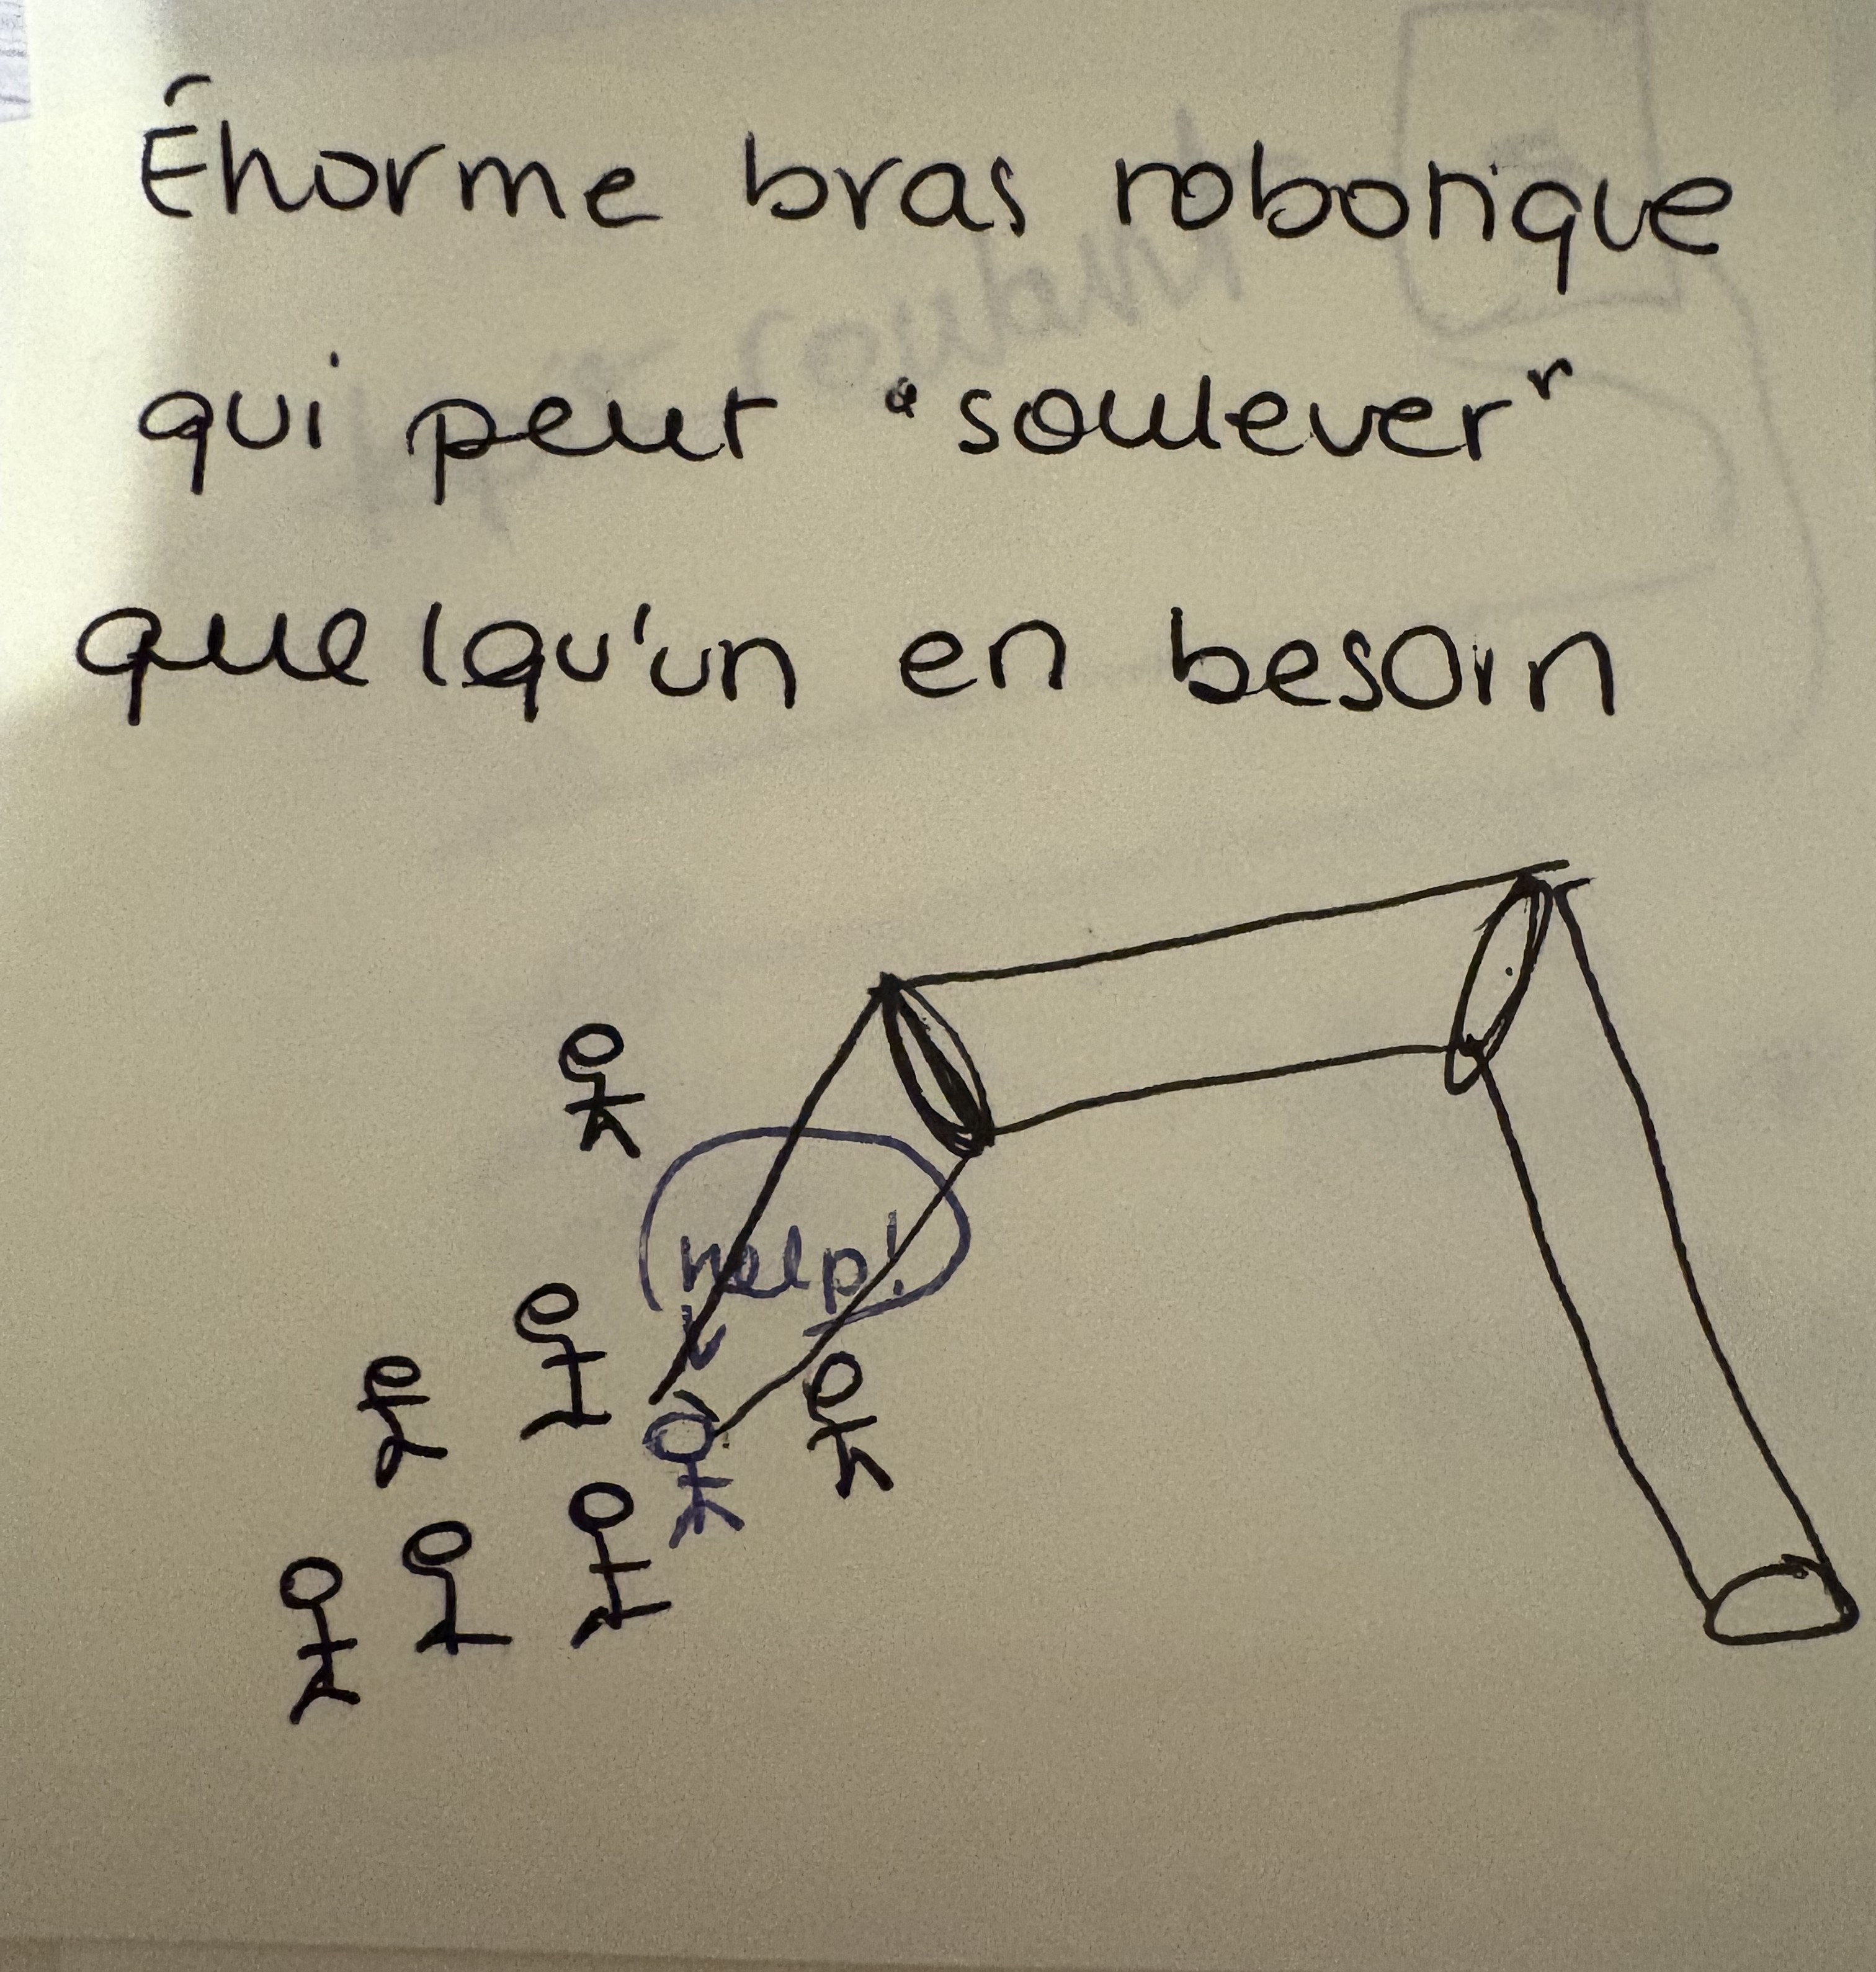 Énorme bras robotique
qui peut "soulever"
quelqu'un en besoin
help!